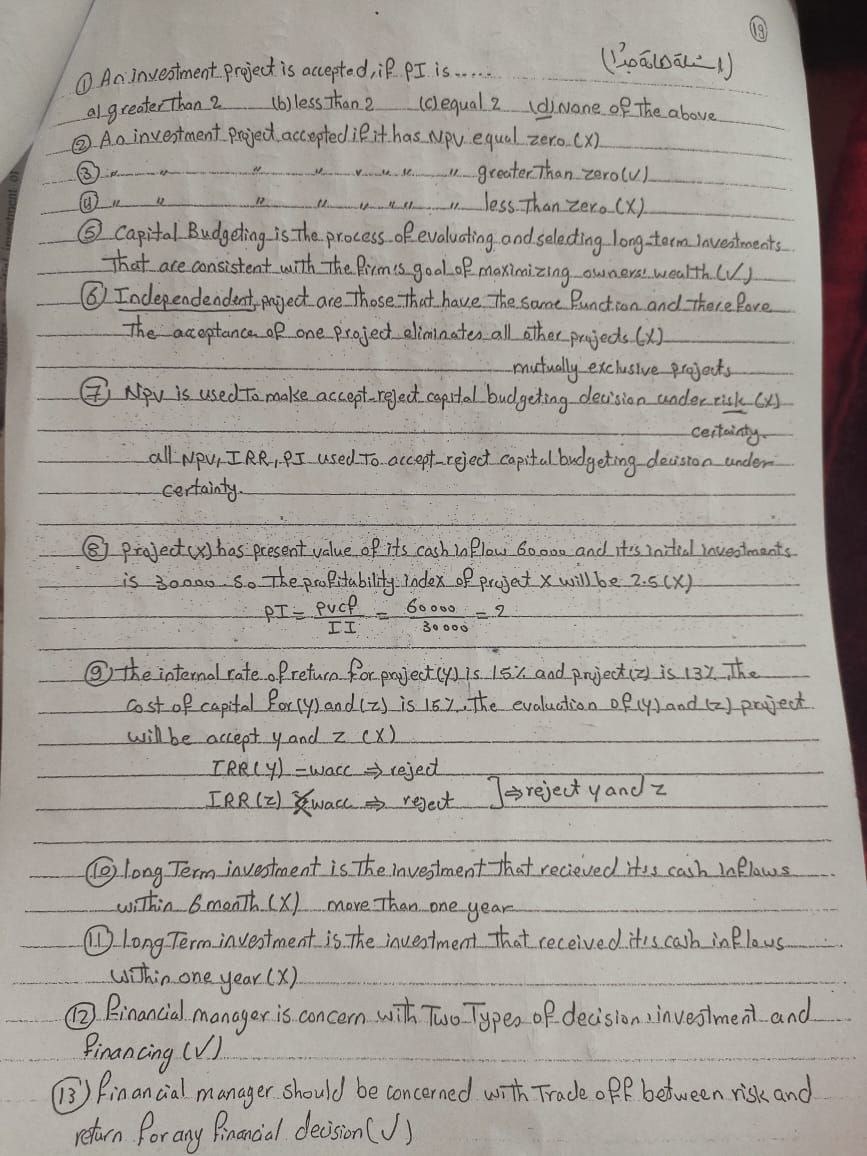 19
(اسئلة هامة جدًا)
① An investment project is accepted, if PI is .....
a) greater Than 2 (b) less Than 2 (c) equal 2 (d) None of The above
② An investment project accepted if it has NPV equal zero (X)
③ " " " " " " " " greater Than zero (✓)
④ " " " " " " " " less Than zero (X)
⑤ Capital Budgeting is The process of evaluating and selecting long-term investments
That are consistent with The firm's goal of maximizing owners' wealth (✓)
⑥ Independendent project are Those That have The same function and Therefore
The acceptance of one project eliminates all other projects (X)
mutually exclusive projects
⑦ NPV is used To make accept-reject capital budgeting decision under risk (X)
certainty.
all NPV, IRR, PI used To accept-reject capital budgeting decision under
certainty.
⑧ Project (x) has present value of its cash inflow 60000 and it's initial investments
is 30000 So The profitability index of project X will be 2.5 (X)
PI = PVCF / II = 60000 / 30000 = 2
⑨ The internal rate of return for project (y) is 15% and project (z) is 13%, The
cost of capital for (y) and (z) is 15%, The evaluation of (y) and (z) project
will be accept y and z (X)
IRR (y) = wacc ⇒ reject
IRR (z) < wacc ⇒ reject ] ⇒ reject y and z
⑩ long Term investment is The investment That recieved it's cash inflows
within 6 month (X) more Than one year
⑪ long Term investment is The investment That received it's cash inflows
within one year (X)
⑫ financial manager is concern with Two Types of decision, investment and
financing (✓)
⑬ financial manager should be concerned with Trade off between risk and
return for any financial decision (✓)